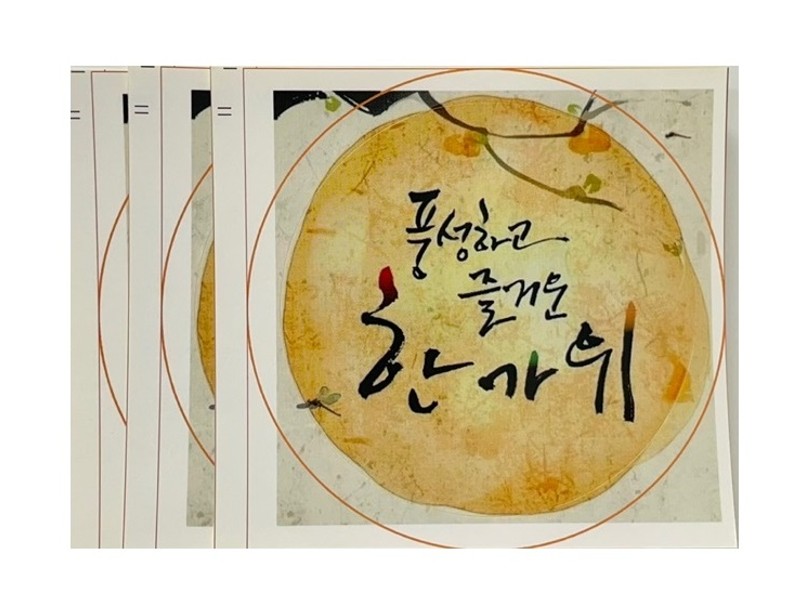 풍성하고
즐거운
한가위